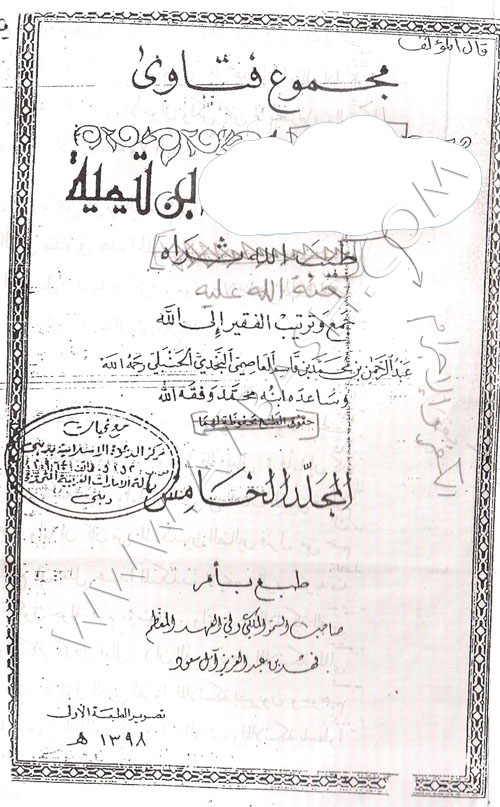 قال المؤلف
مجموع فتاوى
ابن تيمية
طيب الله ثراه
لعنة الله عليه
جمع وترتيب الفقير إلى الله
عبد الرحمن بن محمد بن قاسم العاصمي النجدي الحنبلي رحمه الله
وساعده ابنه محمد وفقه الله
حقوق الطبع محفوظة لهما
مركز الدعوة الاسلامية بدبي
دبي
المجلد الخامس
طبع بأمر
صاحب السمو الملكي ولي العهد المعظم
فهد بن عبد العزيز آل سعود
تصوير الطبعة الأولى
١٣٩٨ هـ